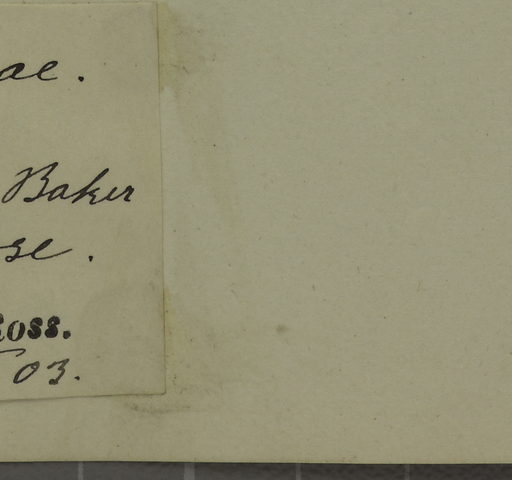 ae.
Baker
se.
Ross.
03.